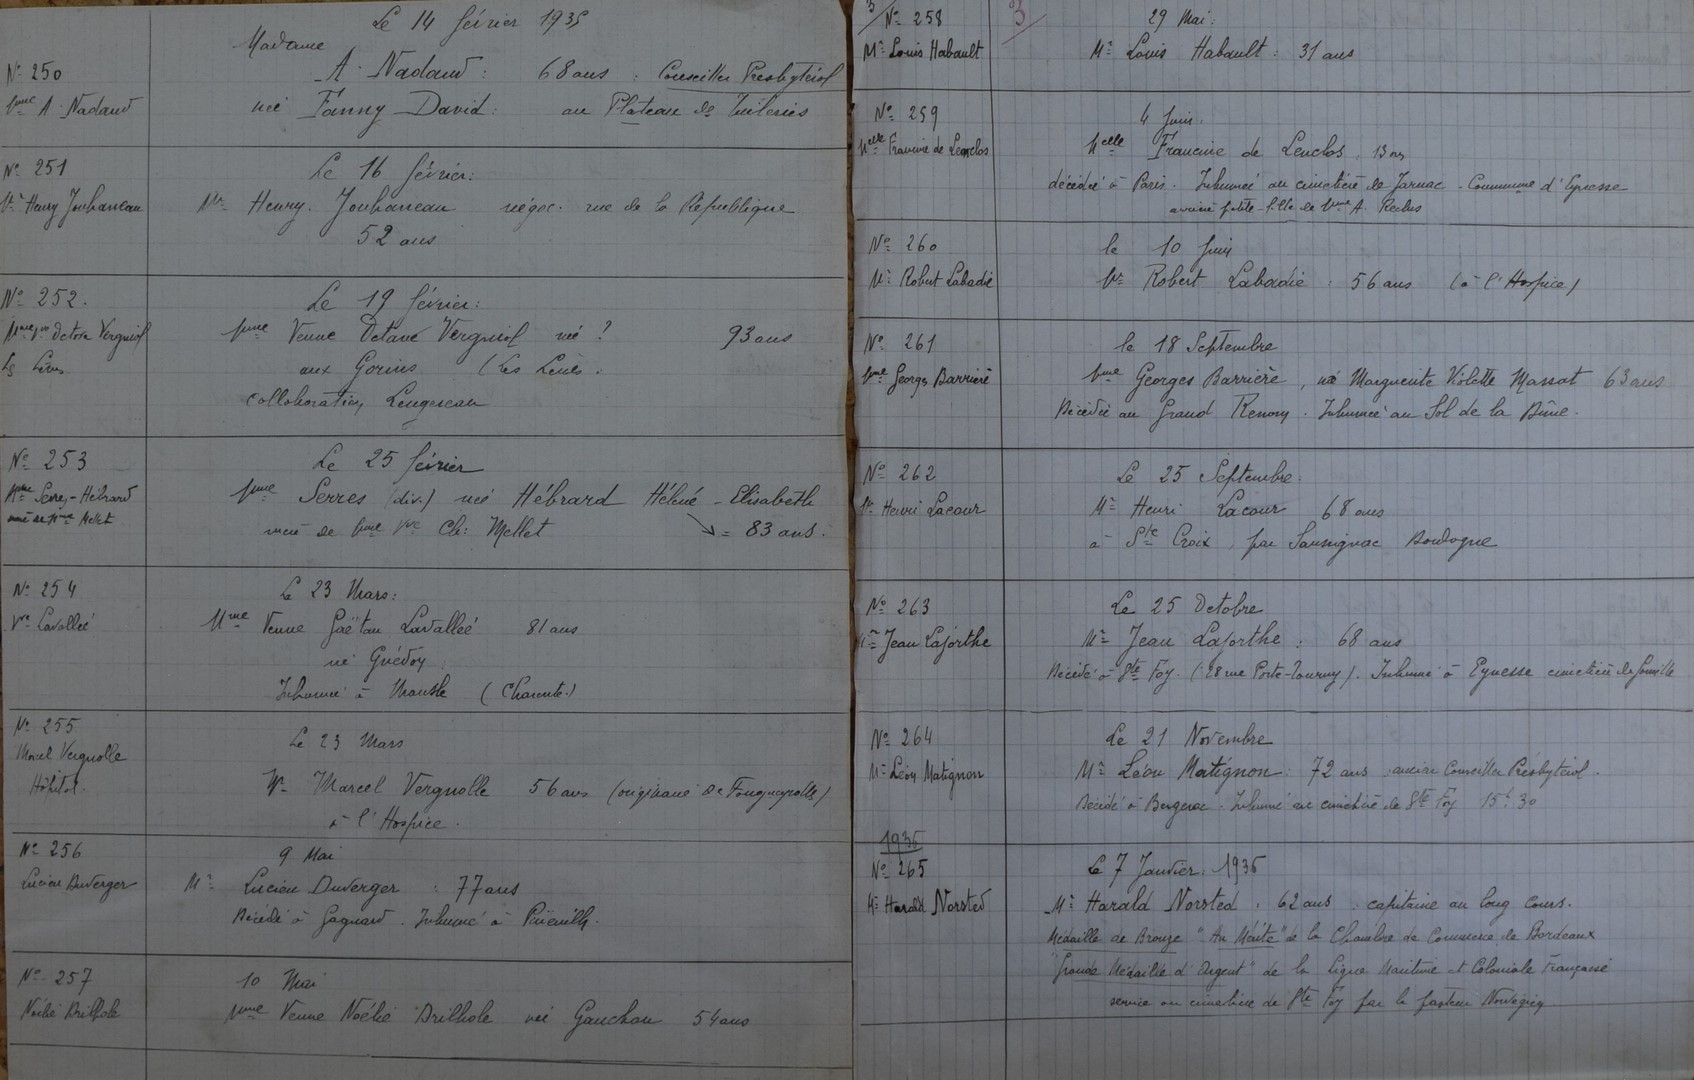 Le 14 février 1935
Madame
N° 250
A. Nadaud : 68 ans : Conseiller Presbytéral
Mme A. Nadaud
née Fanny David : au Plateau de Tuileries
N° 251
Le 16 février :
Mr Henry Jouhaneau
Mr Henry Jouhaneau négoc. rue de la République
52 ans
N° 252.
Le 19 février :
Mme Vve Octave Vergniol
Mme Veuve Octave Vergniol née ? 93 ans
Les Lèves
aux Gorins (Les Lèves.
collaboration Lengereau
N° 253
Le 25 février
Mme Serres-Hébrard
Mme Serres (div.) née Hébrard Hélène-Elisabeth
mère de Mme Mellet
mère de Mme Vve Ch: Mellet = 83 ans.
N° 254
Le 23 Mars :
Vve Lavallée
Mme Veuve Gaëtan Lavallée 81 ans
née Guédon
Inhumée à Mansle (Charente.)
N° 255
Le 23 Mars
Marcel Vergnolle
Hôpital.
Mr Marcel Vergnolle 56 ans (originaire de Fougueyrolles)
à l'Hospice.
N° 256
9 Mai
Lucien Duverger
Mr Lucien Duverger : 77 ans
Décédé à Gagnard. Inhumé à Pineuilh.
N° 257
10 Mai
Noélie Brilhole
Mme Veuve Noélie Brilhole née Gauchou 54 ans
3
N° 258
3
29 Mai :
Mr Louis Habault
Mr Louis Habault : 31 ans
N° 259
4 Juin.
Melle Francine de Lenclos
Melle Francine de Lenclos, 13 ans
décédée à Paris. Inhumée au cimetière de Jarnac - Commune d'Eynesse
arrière petite-fille de Mme A. Reclus
N° 260
le 10 Juin
Mr Robert Labadie
Mr Robert Labadie : 56 ans (à l'Hospice)
N° 261
le 18 Septembre
Mme Georges Barrière
Mme Georges Barrière, née Marguerite Violette Massat 63 ans
Décédée au Grand Renom. Inhumée au Sol de la Dîme.
N° 262
Le 25 Septembre :
Mr Henri Lacour
Mr Henri Lacour 68 ans
à Ste Croix, par Saussignac Dordogne
N° 263
Le 25 Octobre
Mr Jean Laforthe
Mr Jean Laforthe : 68 ans
Décédé à Ste Foy. (28 rue Porte-Tourny). Inhumé à Eynesse cimetière de famille
N° 264
Le 21 Novembre
Mr Léon Matignon
Mr Léon Matignon : 72 ans : ancien Conseiller Presbytéral.
Décédé à Bergerac. Inhumé au cimetière de Ste Foy 15h30
1936
N° 265
Le 7 Janvier. 1936
Mr Harald Norsted
Mr Harald Norsted : 62 ans : capitaine au long cours.
Médaille de Bronze "Au Mérite" de la Chambre de Commerce de Bordeaux
"Grande Médaille d'Argent" de la Ligue Maritime et Coloniale Française
service au cimetière de Ste Foy par le pasteur Norvégien